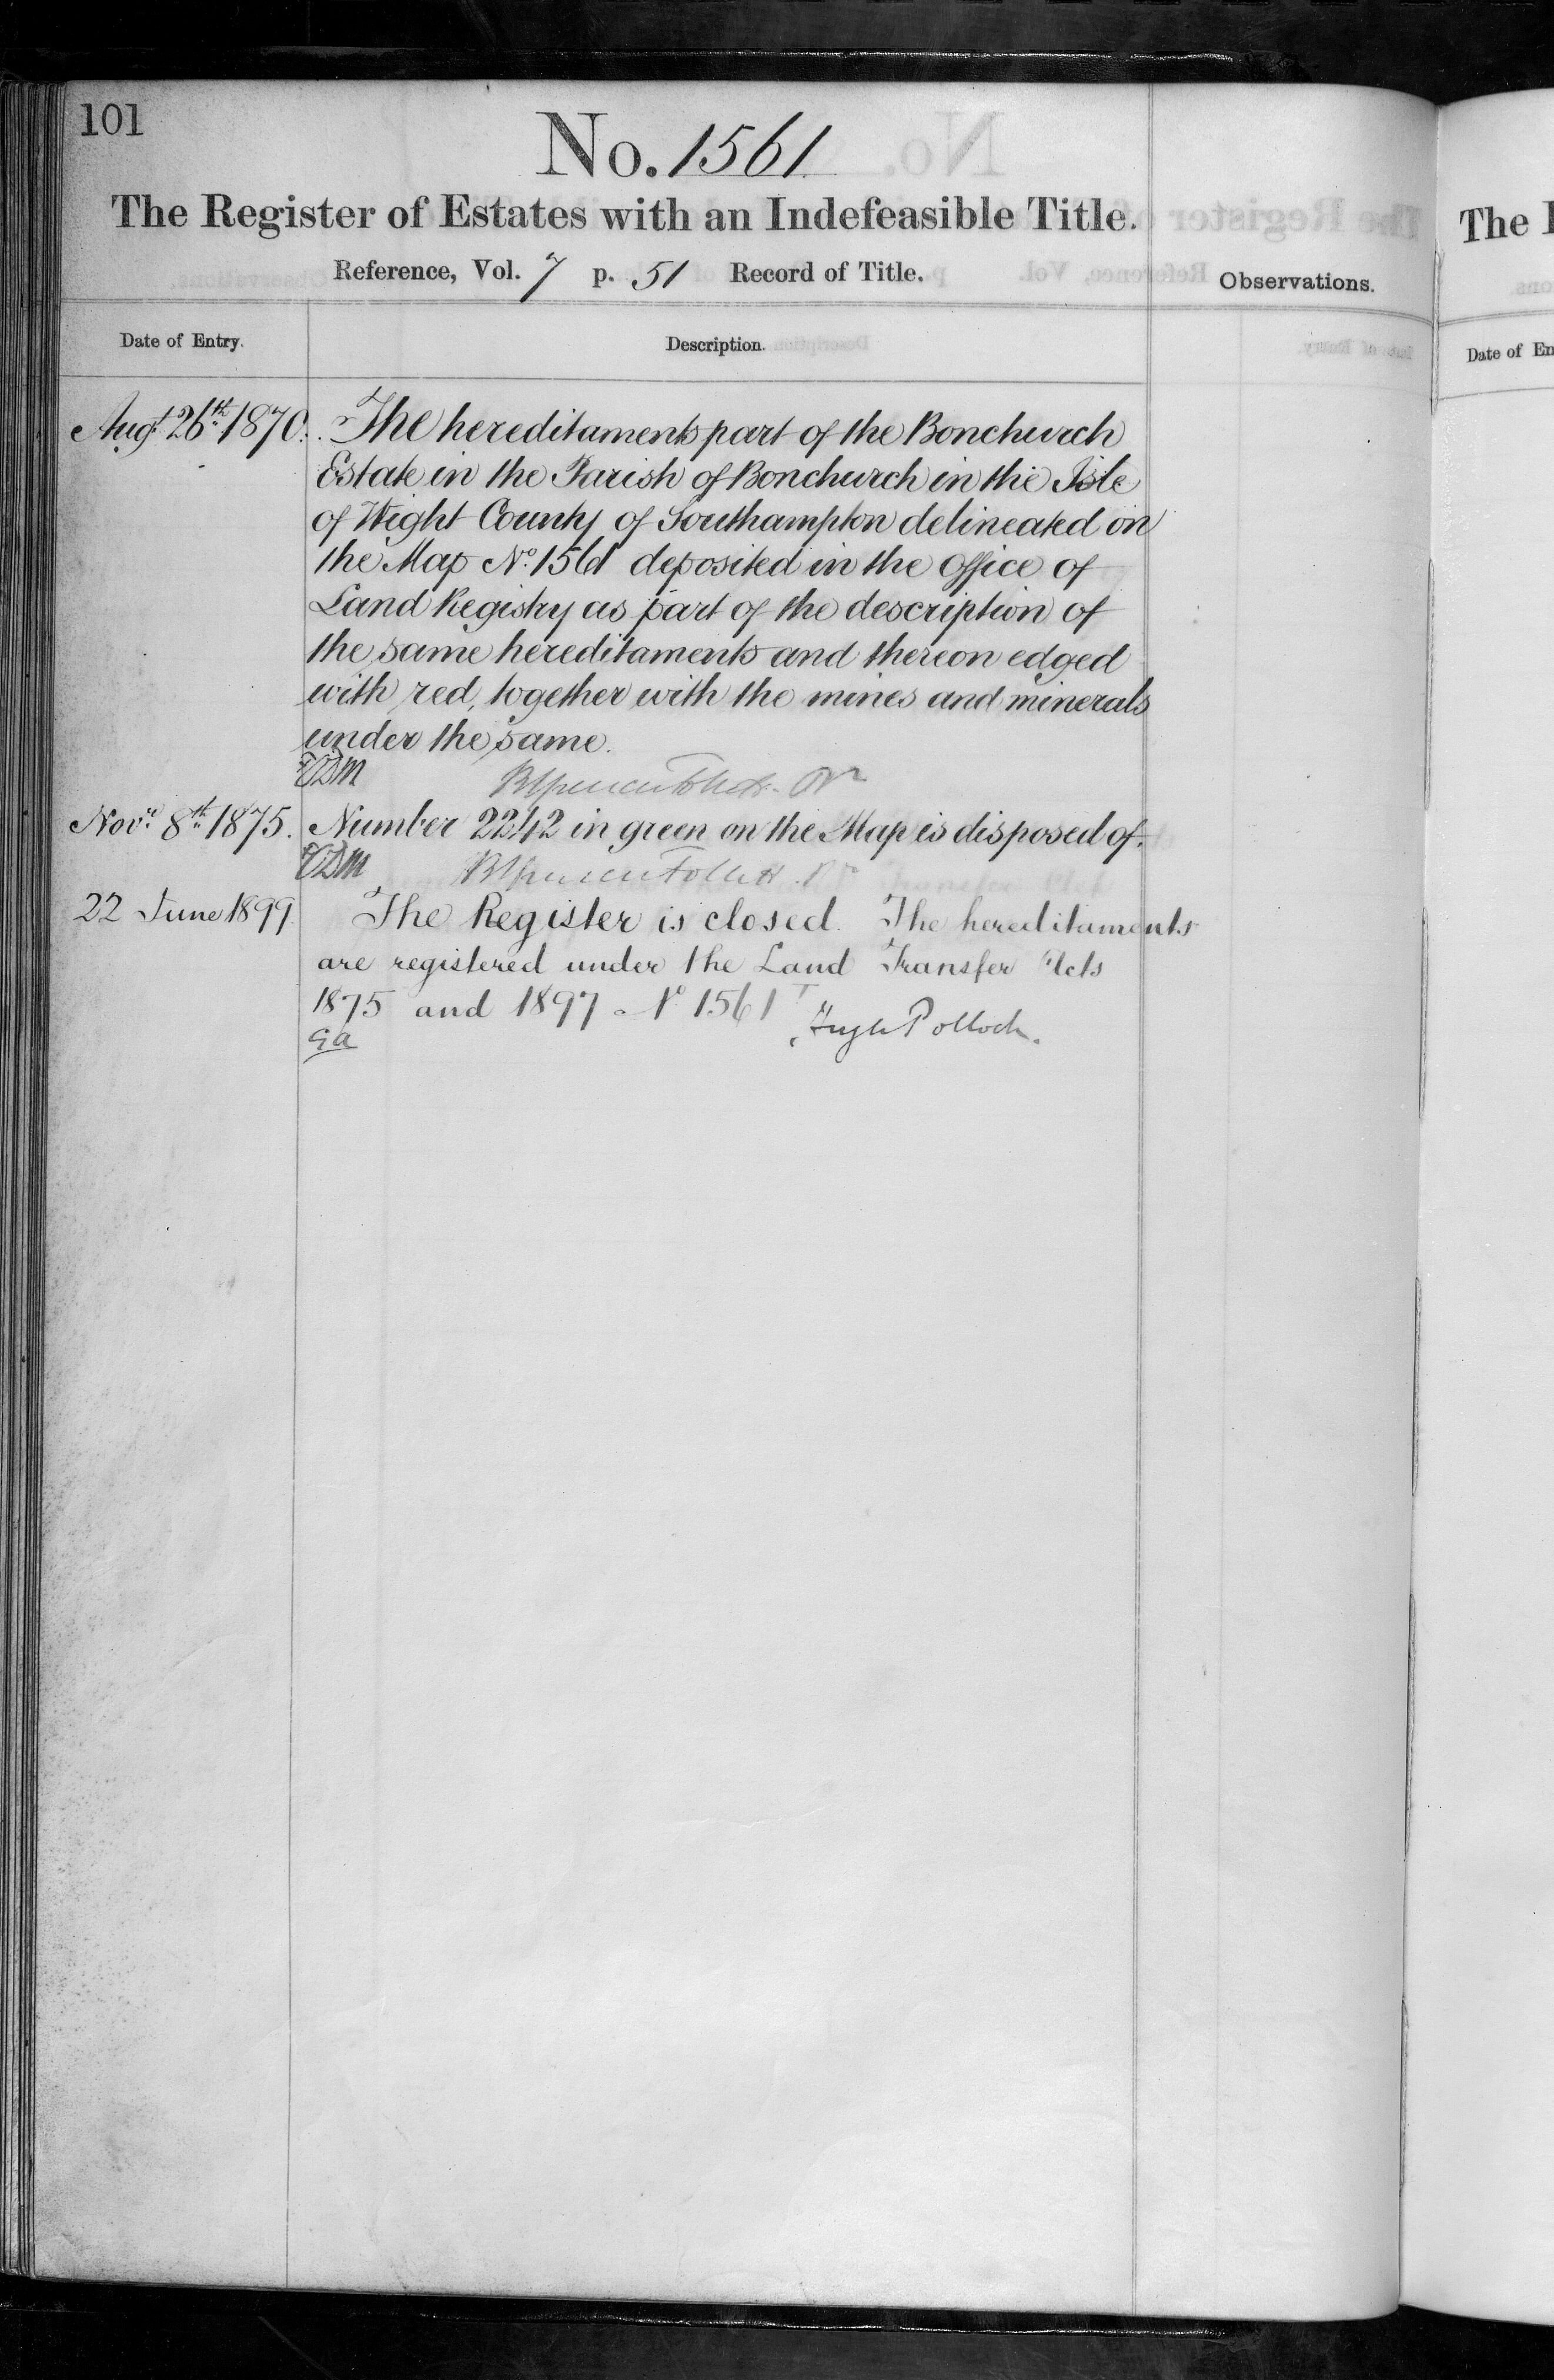 101
No. 1561
The Register of Estates with an Indefeasible Title.
Reference, Vol. 7 p. 51 Record of Title.
Observations.
Date of Entry.
Description.
Augt 26th 1870. The hereditaments part of the Bonchurch
Estate in the Parish of Bonchurch in the Isle
of Wight County of Southampton delineated on
the Map No. 1561 deposited in the Office of
Land Registry as part of the description of
the same hereditaments and thereon edged
with red, together with the mines and minerals
under the same.
Novr 8th 1875. Number 2242 in green on the Map is disposed of.
22 June 1899. The Register is closed. The hereditaments
are registered under the Land Transfer Acts
1875 and 1897 No 1561
Hugh Pollock.
The
Date of En